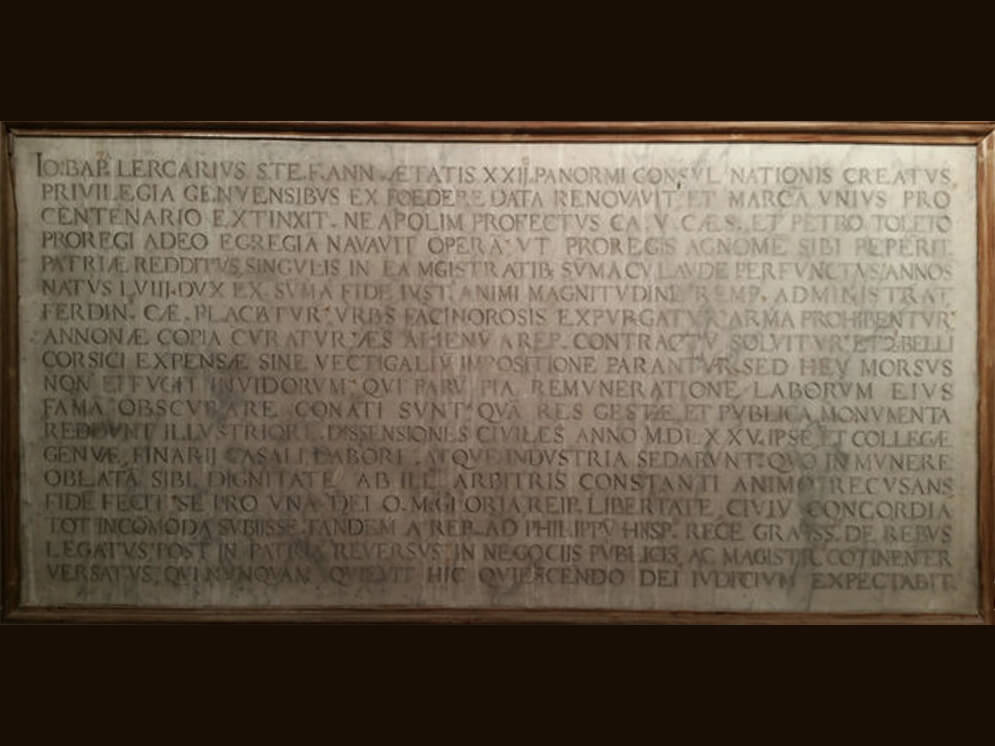 IO. BAP. LERCARIVS STE. F. ANN. ÆTATIS XXII. PANORMI CONSVL NATIONIS CREATVS
PRIVILEGIA GENVENSIBVS EX FOEDERE DATA RENOVAVIT, ET MARCA VNIVS PRO
CENTENARIO EXTINXIT. NEAPOLIM PROFECTVS CA. V. CÆS. ET PETRO TOLETO
PROREGI ADEO EGREGIA NAVAVIT OPERĀ, VT PROREGIS AGNOME SIBI PEPERIT.
PATRIÆ REDDITVS, SINGVLIS IN EA MGISTRATIB. SVMA CV LAVDE PERFVNCTVS, ANNOS
NATVS LVIII. DVX EX SVMA FIDE IVST. ANIMI MAGNITVDINE REMP. ADMINISTRAT,
FERDIN. CÆ. PLACATVR, VRBS FACINOROSIS EXPVRGATVR, ARMA PROHIBENTVR,
ANNONÆ COPIA CVRATVR, ÆS ALIENV A REP. CONTRACTV SOLVITVR, ET BELLI
CORSICI EXPENSÆ SINE VECTIGALIV IMPOSITIONE PARANTVR, SED HEV MORSVS
NON EFFVGIT INVIDORVM, QVI PARV PIA REMVNERATIONE LABORVM EIVS
FAMA OBSCVRARE CONATI SVNT, QVĀ RES GESTÆ ET PVBLICA MONVMENTA
REDDVNT ILLVSTRIORE. DISSENSIONES CIVILES ANNO M.D.LXXV. IPSE ET COLLEGÆ
GENVÆ, FINARIJ CASALI LABORE ATQVE INDVSTRIA SEDARVNT, QVO IN MVNERE
OBLATĀ SIBI DIGNITATE AB ILL. ARBITRIS CONSTANTI ANIMO RECVSANS
FIDE FECIT SE PRO VNA DEI O. M. GLORIA REIP. LIBERTATE CIVIV CONCORDIA
TOT INCOMODA SVBIISSE, TANDEM A REP. AD PHILIPPV HISP. REGE GRAVISS. DE REBVS
LEGATVS, POST IN PATRIA REVERSVS IN NEGOCIIS PVBLICIS, AC MAGISTR. COTINENTER
VERSATVS, QVI NVNQVAM QVIEVIT HIC QVIESCENDO DEI IVDITIVM EXPECTABIT.